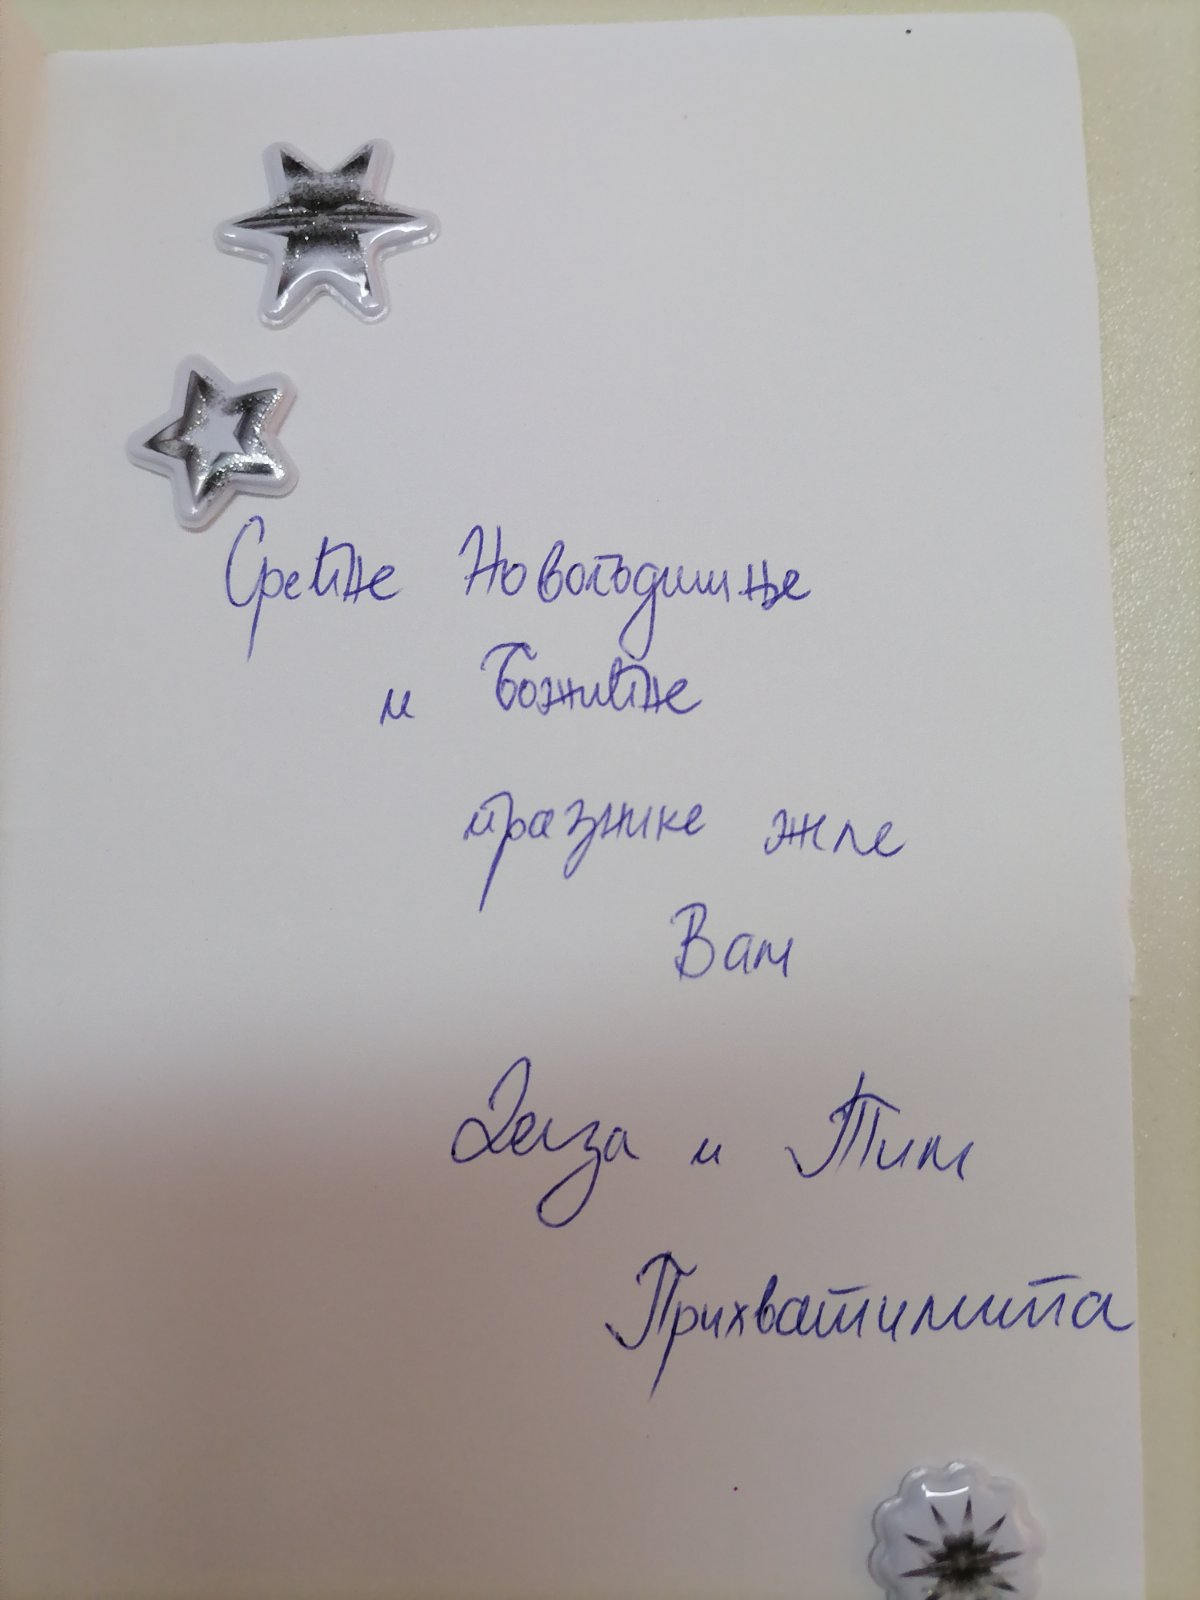 Срећне Новогодишње
и Божићне
празнике желе
Вам
и Тим
Прихватилишта